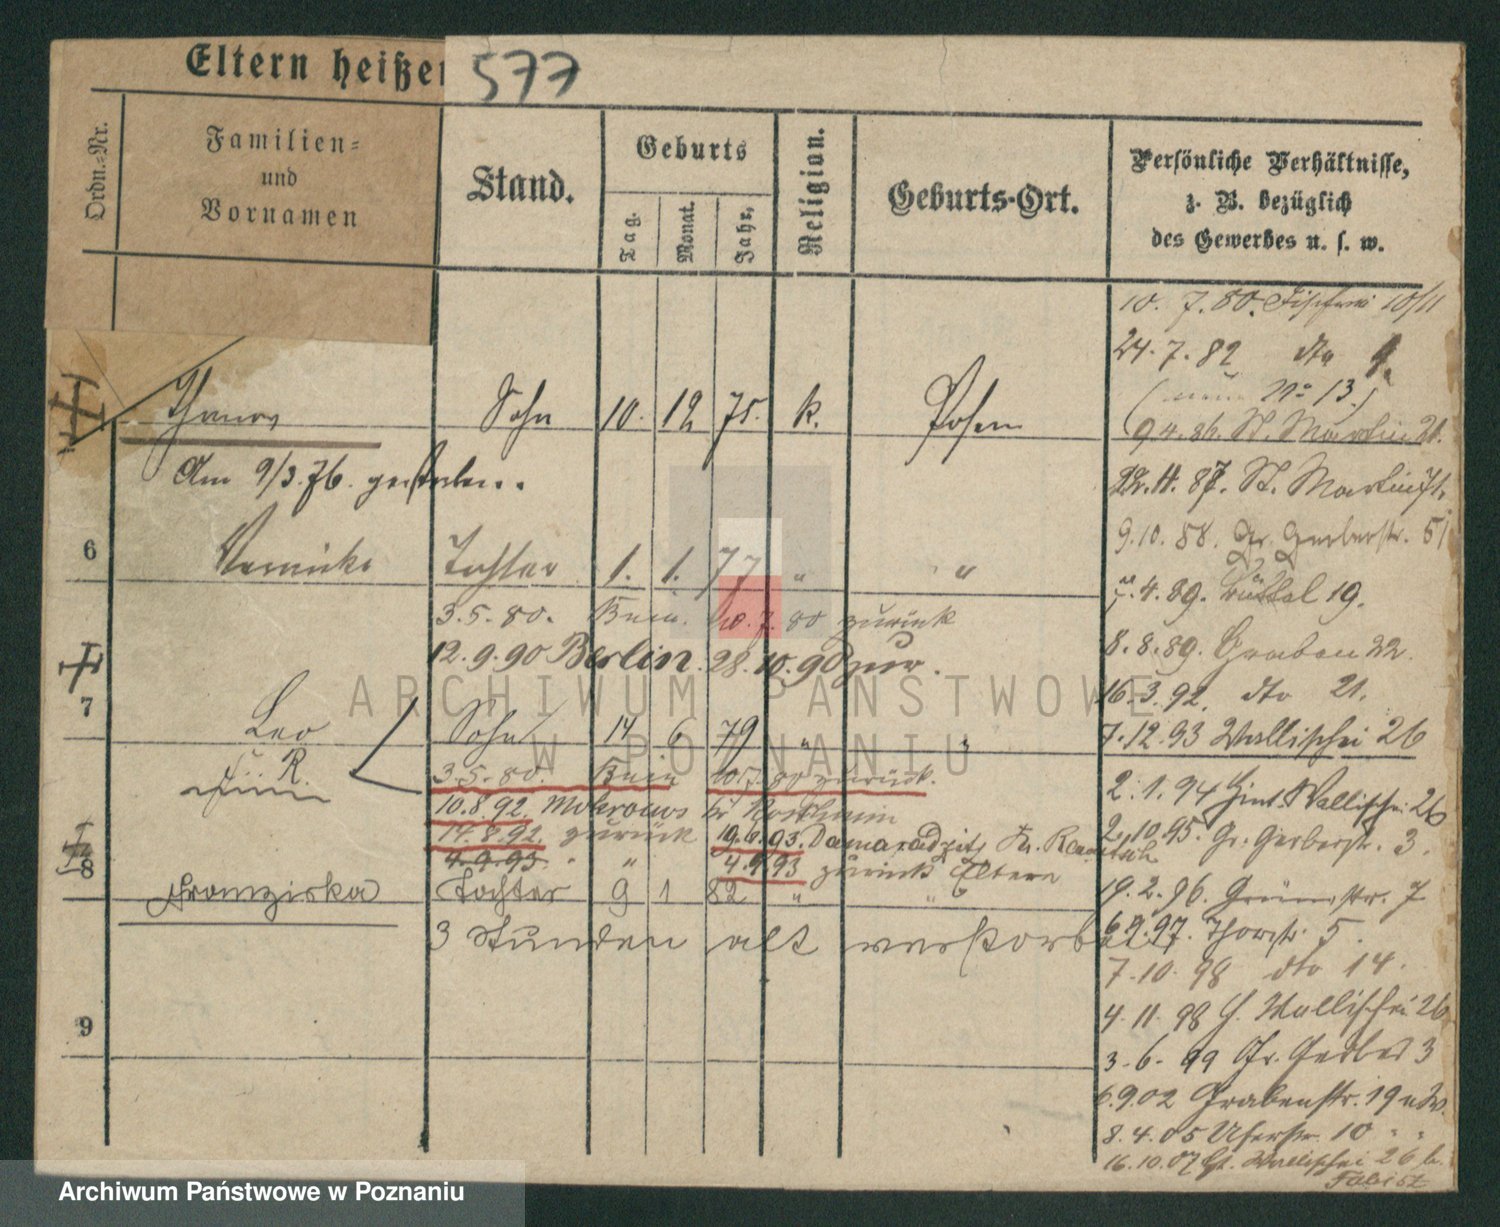 Eltern heißen
577
Ordn.-Nr.
Familien-
und
Vornamen
Stand.
Geburts
Tag.
Monat.
Jahr.
Religion.
Geburts-Ort.
Persönliche Verhältnisse,
z. B. bezüglich
des Gewerbes u. s. w.
10. 7. 80. Fischerei 10/11
24. 7. 82 dto
(neue No 13.)
9 4. 86. St. Martin 21.
Sohn 10. 12 75. k. Posen
Am 9/3. 76. gestorben.
22. 11. 87. St. Martin
9. 10. 88. Gr. Gerberstr. 51
6 Tochter 1. 1. 77 " "
4. 89. 19.
3. 5. 80. Bnin. 10. 7. 80 zurück
8. 8. 89. Graben 22.
12. 9. 90 Berlin. 28. 10. 90 zur.
16. 3. 92. dto 21.
7 Leo Sohn 14 6 79 "
7. 12. 93 Wallischei 26
R.
3. 5. 80. Bnin 10. 7. 80 zurück.
2. 1. 94 Hint. Wallischei 26
10. 8. 92. Mokronos Kr Koschmin
14. 8. 92. zurück 19. 6. 93. Kr.
2. 10. 95. Gr. Gerberstr. 3.
4. 9. 93. " 4. 9. 93 zurück Eltern
8 Franziska Tochter 9 1 82 " "
19. 2. 96. Grünestr. 7
3 Stunden alt verstorben
6. 9. 97. Thorstr. 5.
7. 10. 98 dto 14.
9
4. 11. 98 H. Wallischei 26
3. 6. 99 Gr. Gerber 3
6. 9. 02 Grabenstr. 19
8. 4. 05 Uferstr. 10 " "
16. 10. 07 Wallischei 26 b.
ARCHIWUM PAŃSTWOWE
W POZNANIU
Archiwum Państwowe w Poznaniu